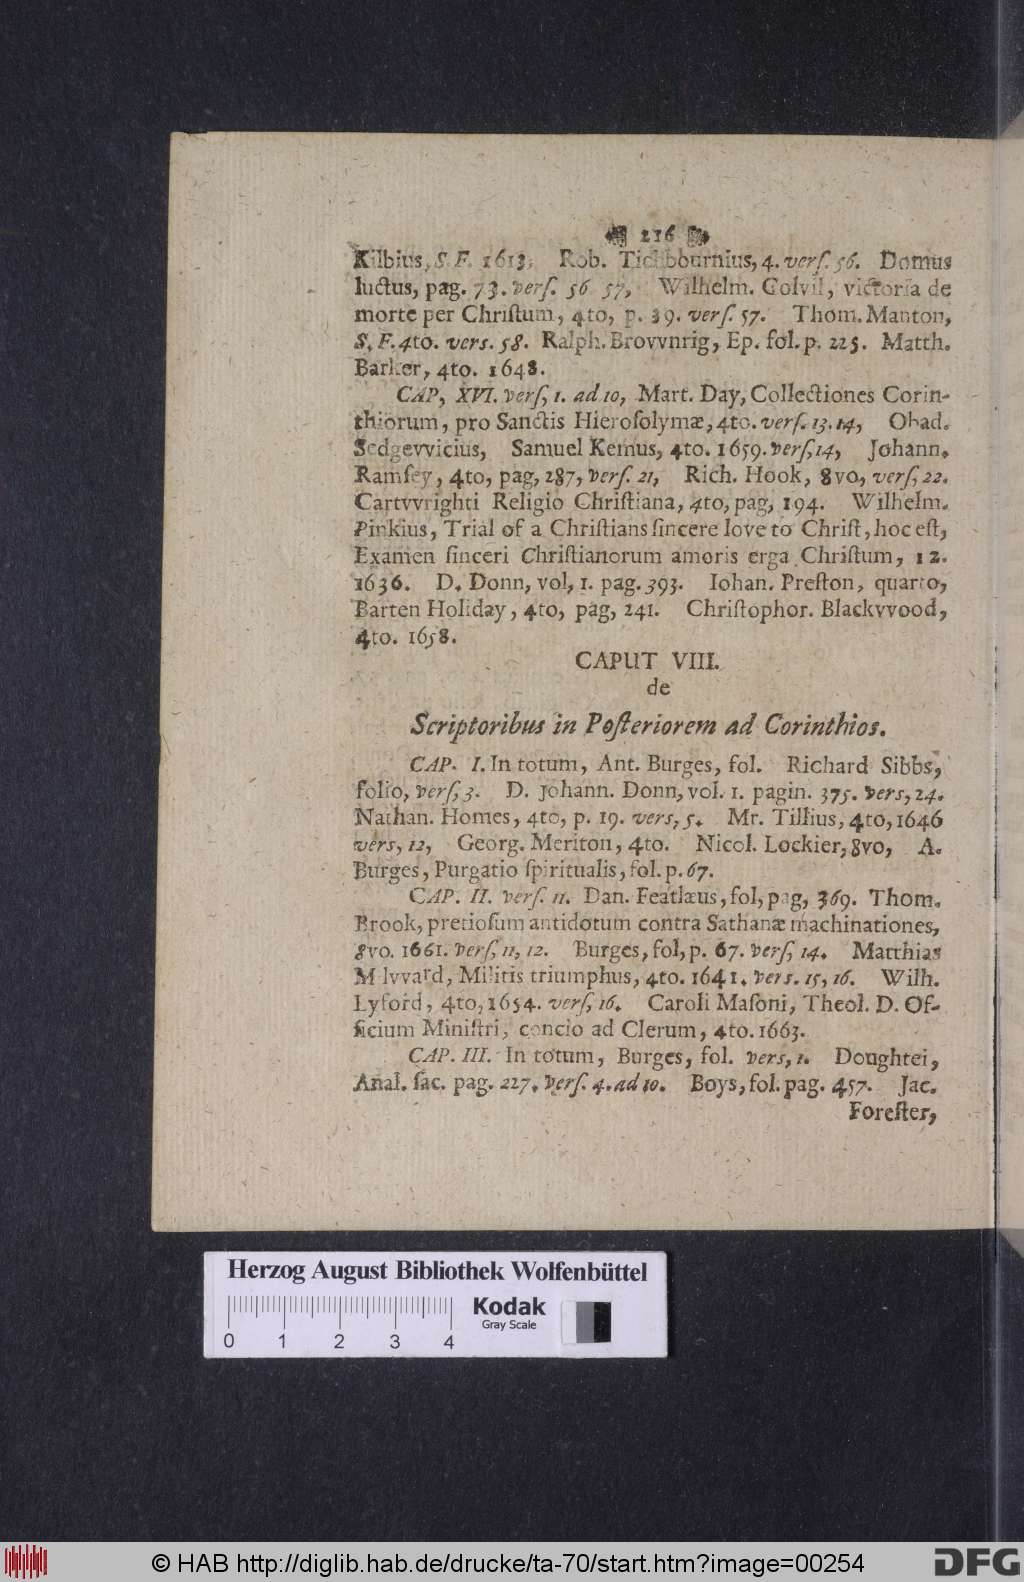 216
Kilbius, S. F. 1613, Rob. Tichbournius, 4. verſ. 56. Domus
luctus, pag. 73. verſ. 56 57, Wilhelm. Goſvil, victoria de
morte per Chriſtum, 4to, p. 39. verſ. 57. Thom. Manton,
S. F. 4to. vers. 58. Ralph. Brovvnrig, Ep. fol. p. 225. Matth.
Barker, 4to. 1648.
CAP, XVI. verſ, 1. ad 10, Mart. Day, Collectiones Corin-
thiorum, pro Sanctis Hieroſolymæ, 4to. verſ. 13. 14, Obad.
Sedgevvicius, Samuel Kemus, 4to. 1659. verſ, 14, Johann.
Ramſey, 4to, pag, 287, verſ. 21, Rich. Hook, 8vo, verſ, 22.
Cartvvrighti Religio Chriſtiana, 4to, pag, 194. Wilhelm.
Pinkius, Trial of a Chriſtians ſincere love to Chriſt, hoc eſt,
Examen ſinceri Chriſtianorum amoris erga Chriſtum, 12.
1636. D. Donn, vol, 1. pag. 393. Iohan. Preſton, quarto,
Barten Holiday, 4to, pag, 241. Chriſtophor. Blackvvood,
4to. 1658.
CAPUT VIII.
de
Scriptoribus in Poſteriorem ad Corinthios.
CAP. I. In totum, Ant. Burges, fol. Richard Sibbs,
folio, verſ, 3. D. Johann. Donn, vol. 1. pagin. 375. vers, 24.
Nathan. Homes, 4to, p. 19. vers, 5. Mr. Tillius, 4to, 1646
vers, 12, Georg. Meriton, 4to. Nicol. Lockier, 8vo, A.
Burges, Purgatio ſpiritualis, fol. p. 67.
CAP. II. verſ. 11. Dan. Featlæus, fol, pag, 369. Thom.
Brook, pretioſum antidotum contra Sathanæ machinationes,
8vo. 1661. verſ, 11, 12. Burges, fol, p. 67. verſ, 14. Matthias
M lvvard, Militis triumphus, 4to. 1641. vers. 15, 16. Wilh.
Lyford, 4to, 1654. verſ, 16. Caroli Maſoni, Theol. D. Of-
ficium Miniſtri, concio ad Clerum, 4to. 1663.
CAP. III. In totum, Burges, fol. vers, 1. Doughtei,
Anal. ſac. pag. 227. verſ. 4. ad 10. Boys, fol. pag. 457. Jac.
Foreſter,
Herzog August Bibliothek Wolfenbüttel
Kodak
Gray Scale
0 1 2 3 4
© HAB http://diglib.hab.de/drucke/ta-70/start.htm?image=00254
DFG